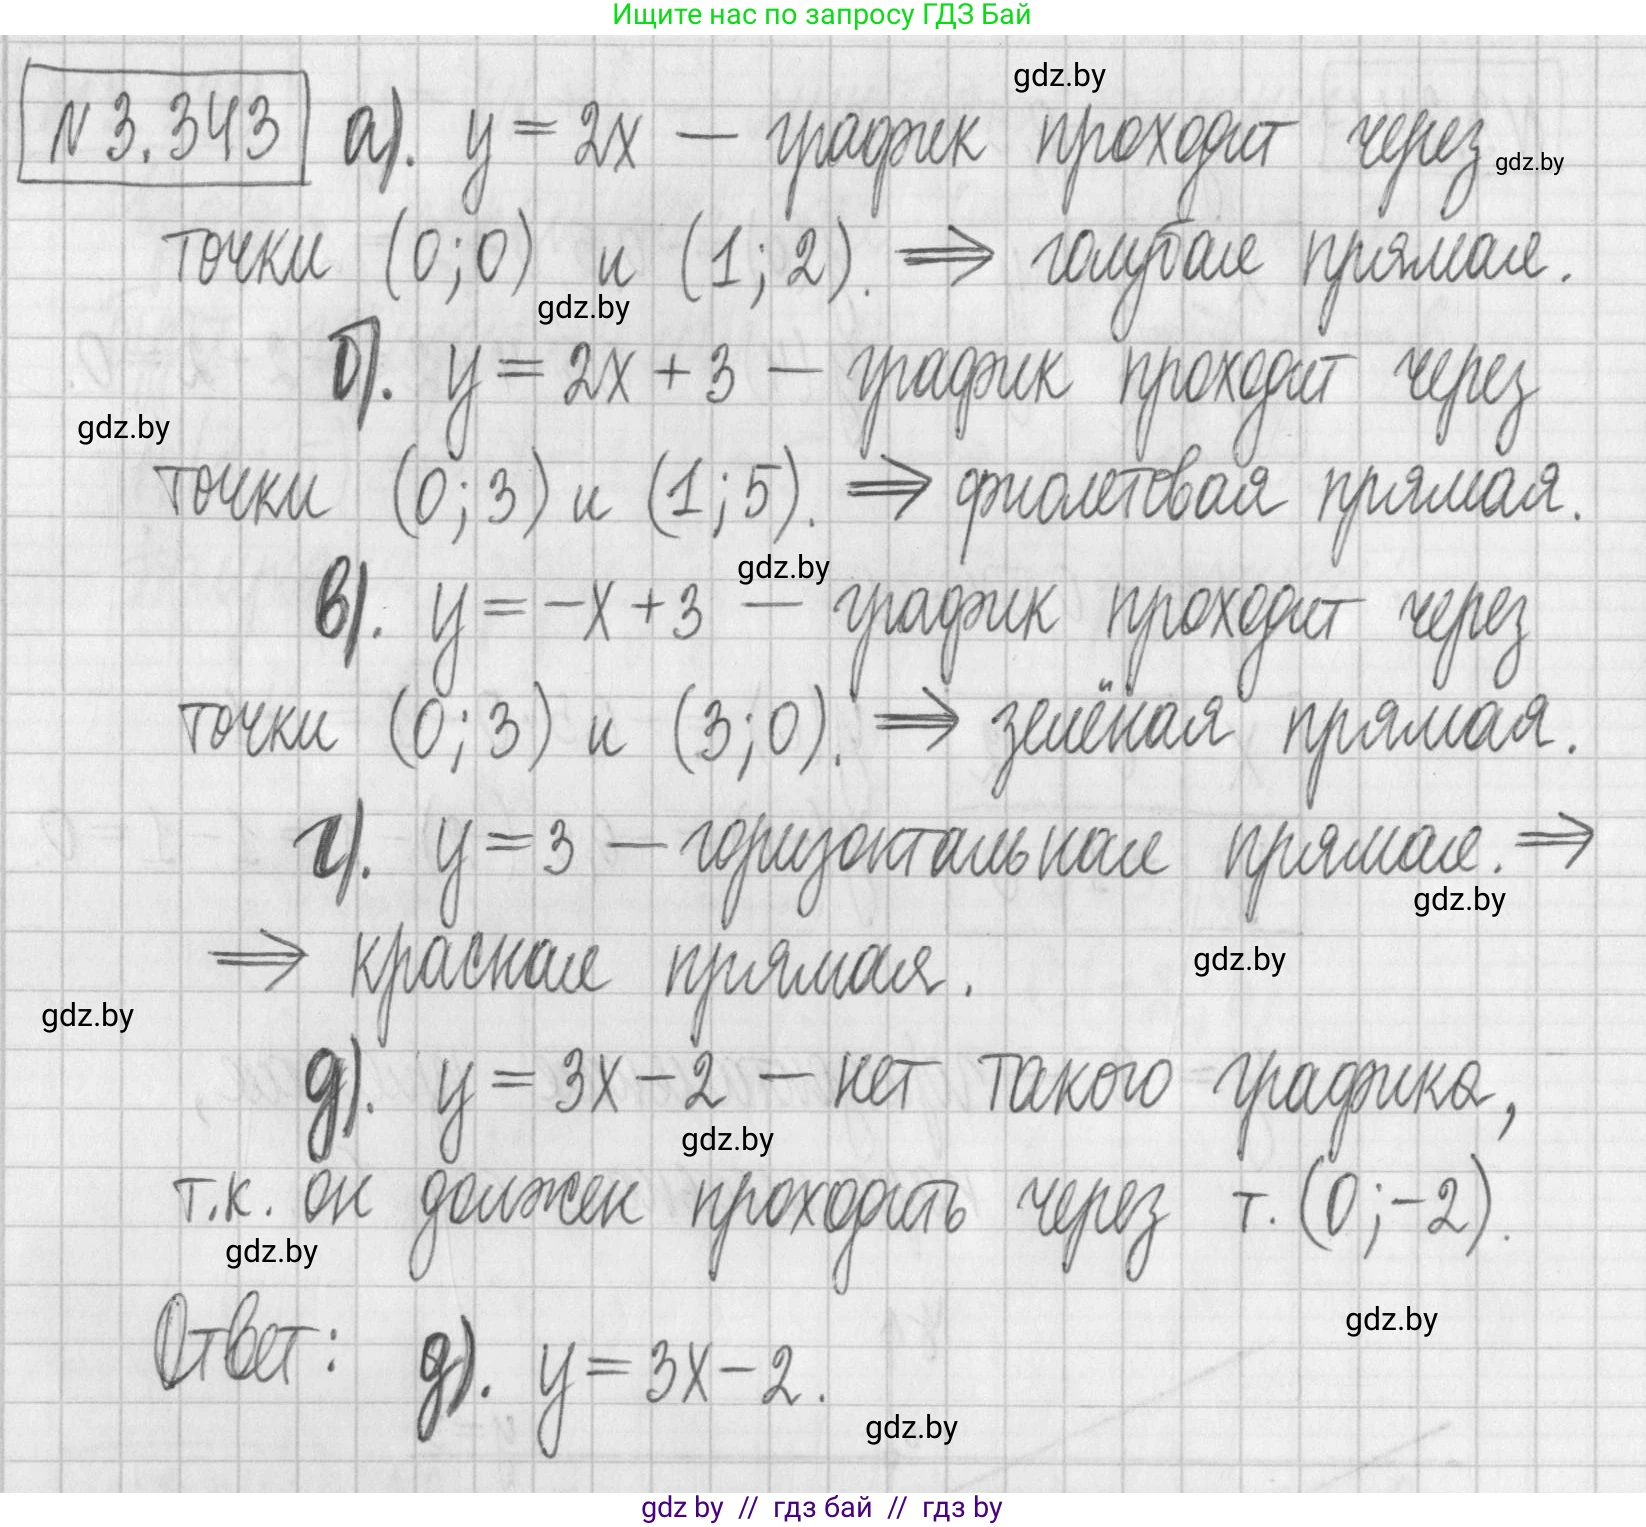 Ищите нас по запросу ГДЗ Бай
gdz.by
N 3.343 а). y = 2x — график проходит через
gdz.by
точки (0;0) и (1;2). ⇒ голубая прямая.
gdz.by
б). y = 2x + 3 — график проходит через
gdz.by
точки (0;3) и (1;5). ⇒ фиолетовая прямая.
gdz.by
в). y = -x + 3 — график проходит через
точки (0;3) и (3;0). ⇒ зелёная прямая.
г). y = 3 — горизонтальная прямая. ⇒
gdz.by
⇒ красная прямая.
gdz.by
gdz.by
д). y = 3x - 2 — нет такого графика,
gdz.by
т.к. он должен проходить через т. (0;-2).
gdz.by
gdz.by
Ответ: д). y = 3x - 2.
gdz.by
gdz by // гдз бай // гдз by